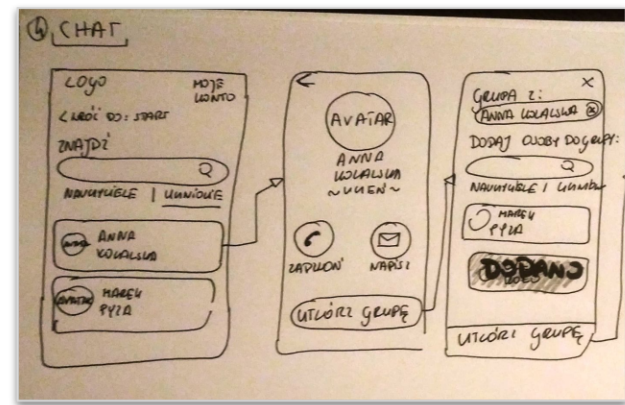 4. CHAT
LOGO
MOJE
KONTO
< WRÓĆ DO: START
ZNAJDŹ
NAUCZYCIELE | UCZNIOWIE
AVATAR
ANNA
KOWALSKA
AVATAR
MAREK
PYZA
AVATAR
ANNA
KOWALSKA
~UCZEŃ~
ZADZWOŃ
NAPISZ
UTWÓRZ GRUPĘ
×
GRUPA Z:
ANNA KOWALSKA ⊗
DODAJ OSOBY DO GRUPY:
NAUCZYCIELE | UCZNIOWIE
MAREK
PYZA
DODANO
UTWÓRZ GRUPĘ